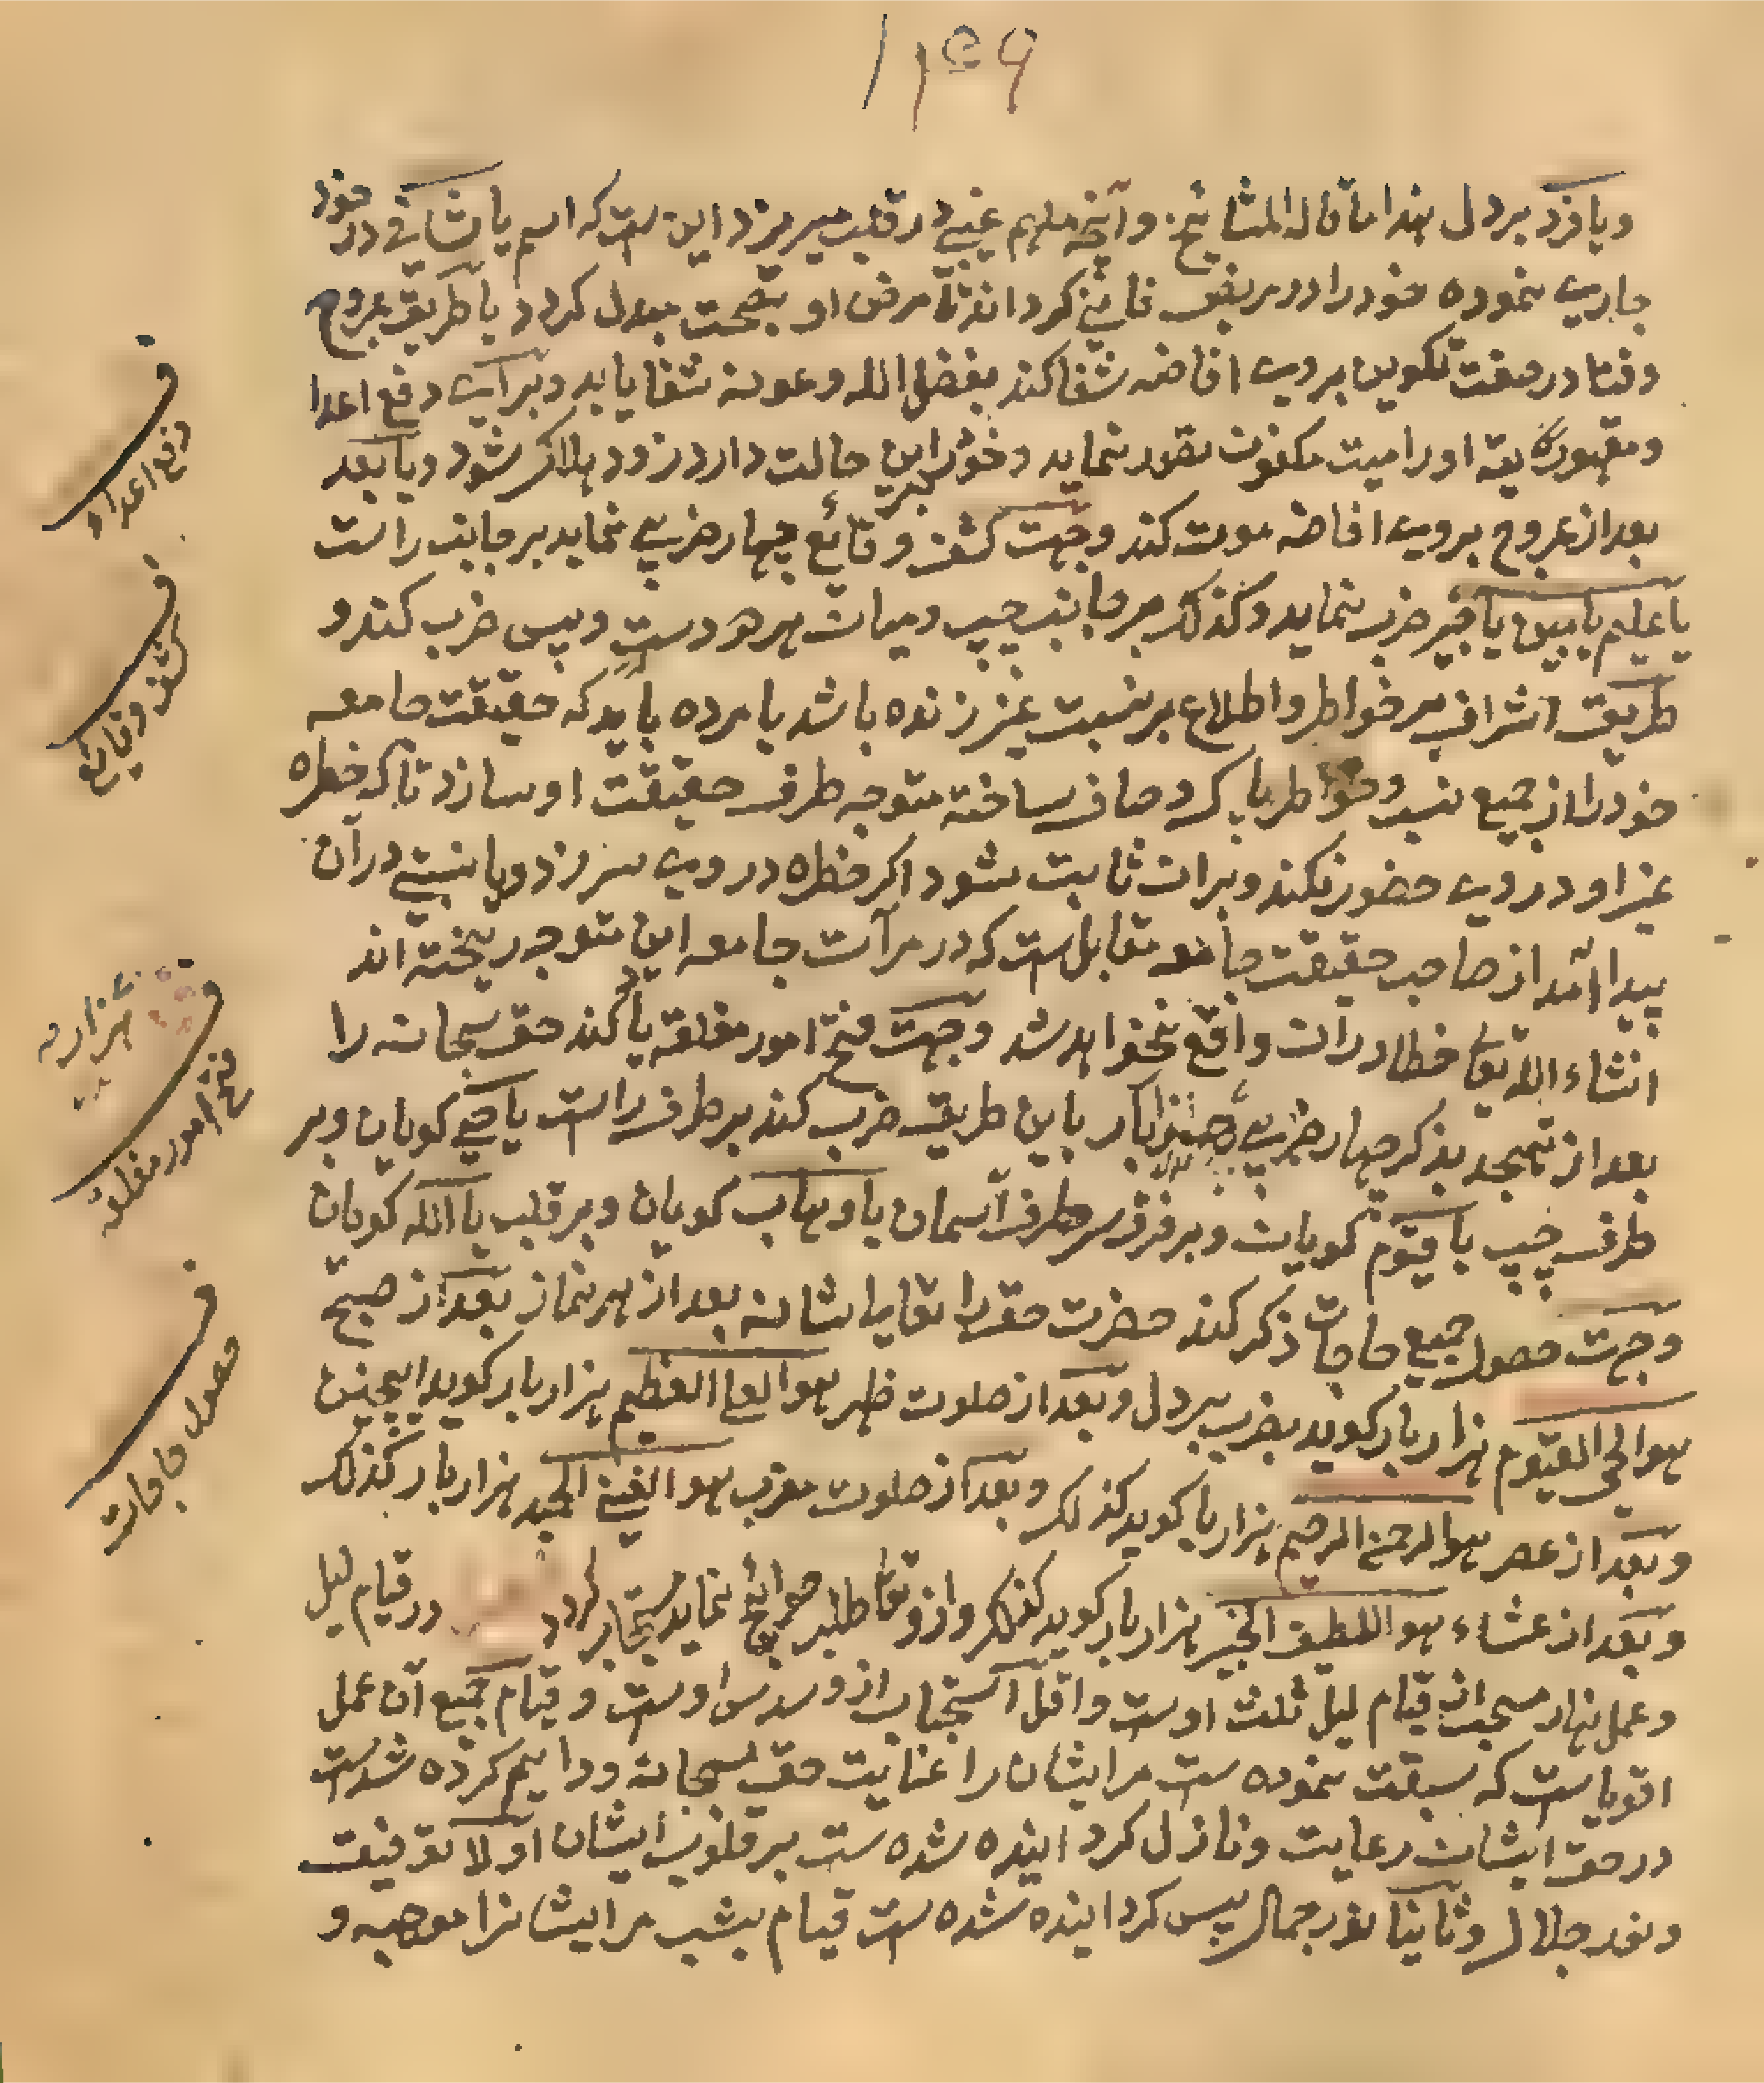 و یا فرد بر دل هذا ما قاله المشایخ و آنچه ملهم غیبی در قلب میریزد این ست که اسم یا شافی در خود
جاری نموده خود را در مریض فانی گرداند تا مرض او بصحت مبدل گردد یا طریق عروج
و فنا در صفت تکوین بروی افاضه شفا کند بفضل الله و عونه شفا یابد و برای دفع اعدا
و مقهور او را میت مکفون تصور نماید و خود این حالت دارد زود هلاک شود و یا بعد
بعد از عروج بروی افاضه موت کند و جهت کشف وقائع چهار ضربی نماید بر جانب راست
یا علیم یا مبین یا خبیر ضرب نماید و کذلک بر جانب چپ و میان هر دو دست و پس ضرب کند و
طریق اشراف بر خواطر و اطلاع بر نسبت غیر زنده باشد یا مرده باید که حقیقت جامعه
خود را از جمیع نسب و خواطر پاک و صاف ساخته متوجه طرف حقیقت او سازد تا که خطره
غیر او در وی حضور نکند و بران ثابت شود اگر خطره در وی سر زد و یا نسبتی در آن
پیدا آمد از صاحب حقیقت جامعه مقابل ست که در مرآت جامعه این متوجه ریخته اند
انشاء الله تعا خطا در ان واقع نخواهد شد و جهت فتح امور مغلقه یاد کند حق سبحانه را
بعد از تهجد بذکر چهار ضربی هزار بار باین طریق ضرب کند بر طرف راست یا حی گویان و بر
طرف چپ یا قیوم گویان و بر فرق سر طرف آسمان یا وهاب گویان و بر قلب یا الله گویان
و جهت حصول جمیع حاجات ذکر کند حضرت حق را تعالی شانه بعد از هر نماز بعد از صبح
هو الحی القیوم هزار بار گوید بضرب بر دل و بعد از صلوت ظهر هو العلی العظیم هزار بار گوید اینچنین
و بعد از عصر هو الرحمن الرحیم هزار بار گوید کذلک و بعد از صلوت مغرب هو الغنی الحمید هزار بار کذلک
و بعد از عشاء هو اللطیف الخبیر هزار بار گوید کذلک و ازو تعا طلب حوائج نماید مستجاب گردد در قیام لیل
و عمل نهار مستحب از قیام لیل ثلث اوست و اقل استحباب از و سدس اوست و قیام جمیع آن عمل
اقویاست که سبقت نموده ست مر ایشان را عنایت حق سبحانه و دایم کرده شدست
در حق ایشان رعایت و نازل گردانیده شده ست بر قلوب ایشان اولا توفیق
و نور جلال و ثانیا نور جمال پس گردانیده شده ست قیام بشب مر ایشانرا موهبه و
دفع اعداء
کشف وقایع
فتح امور مغلقه
حصول حاجات